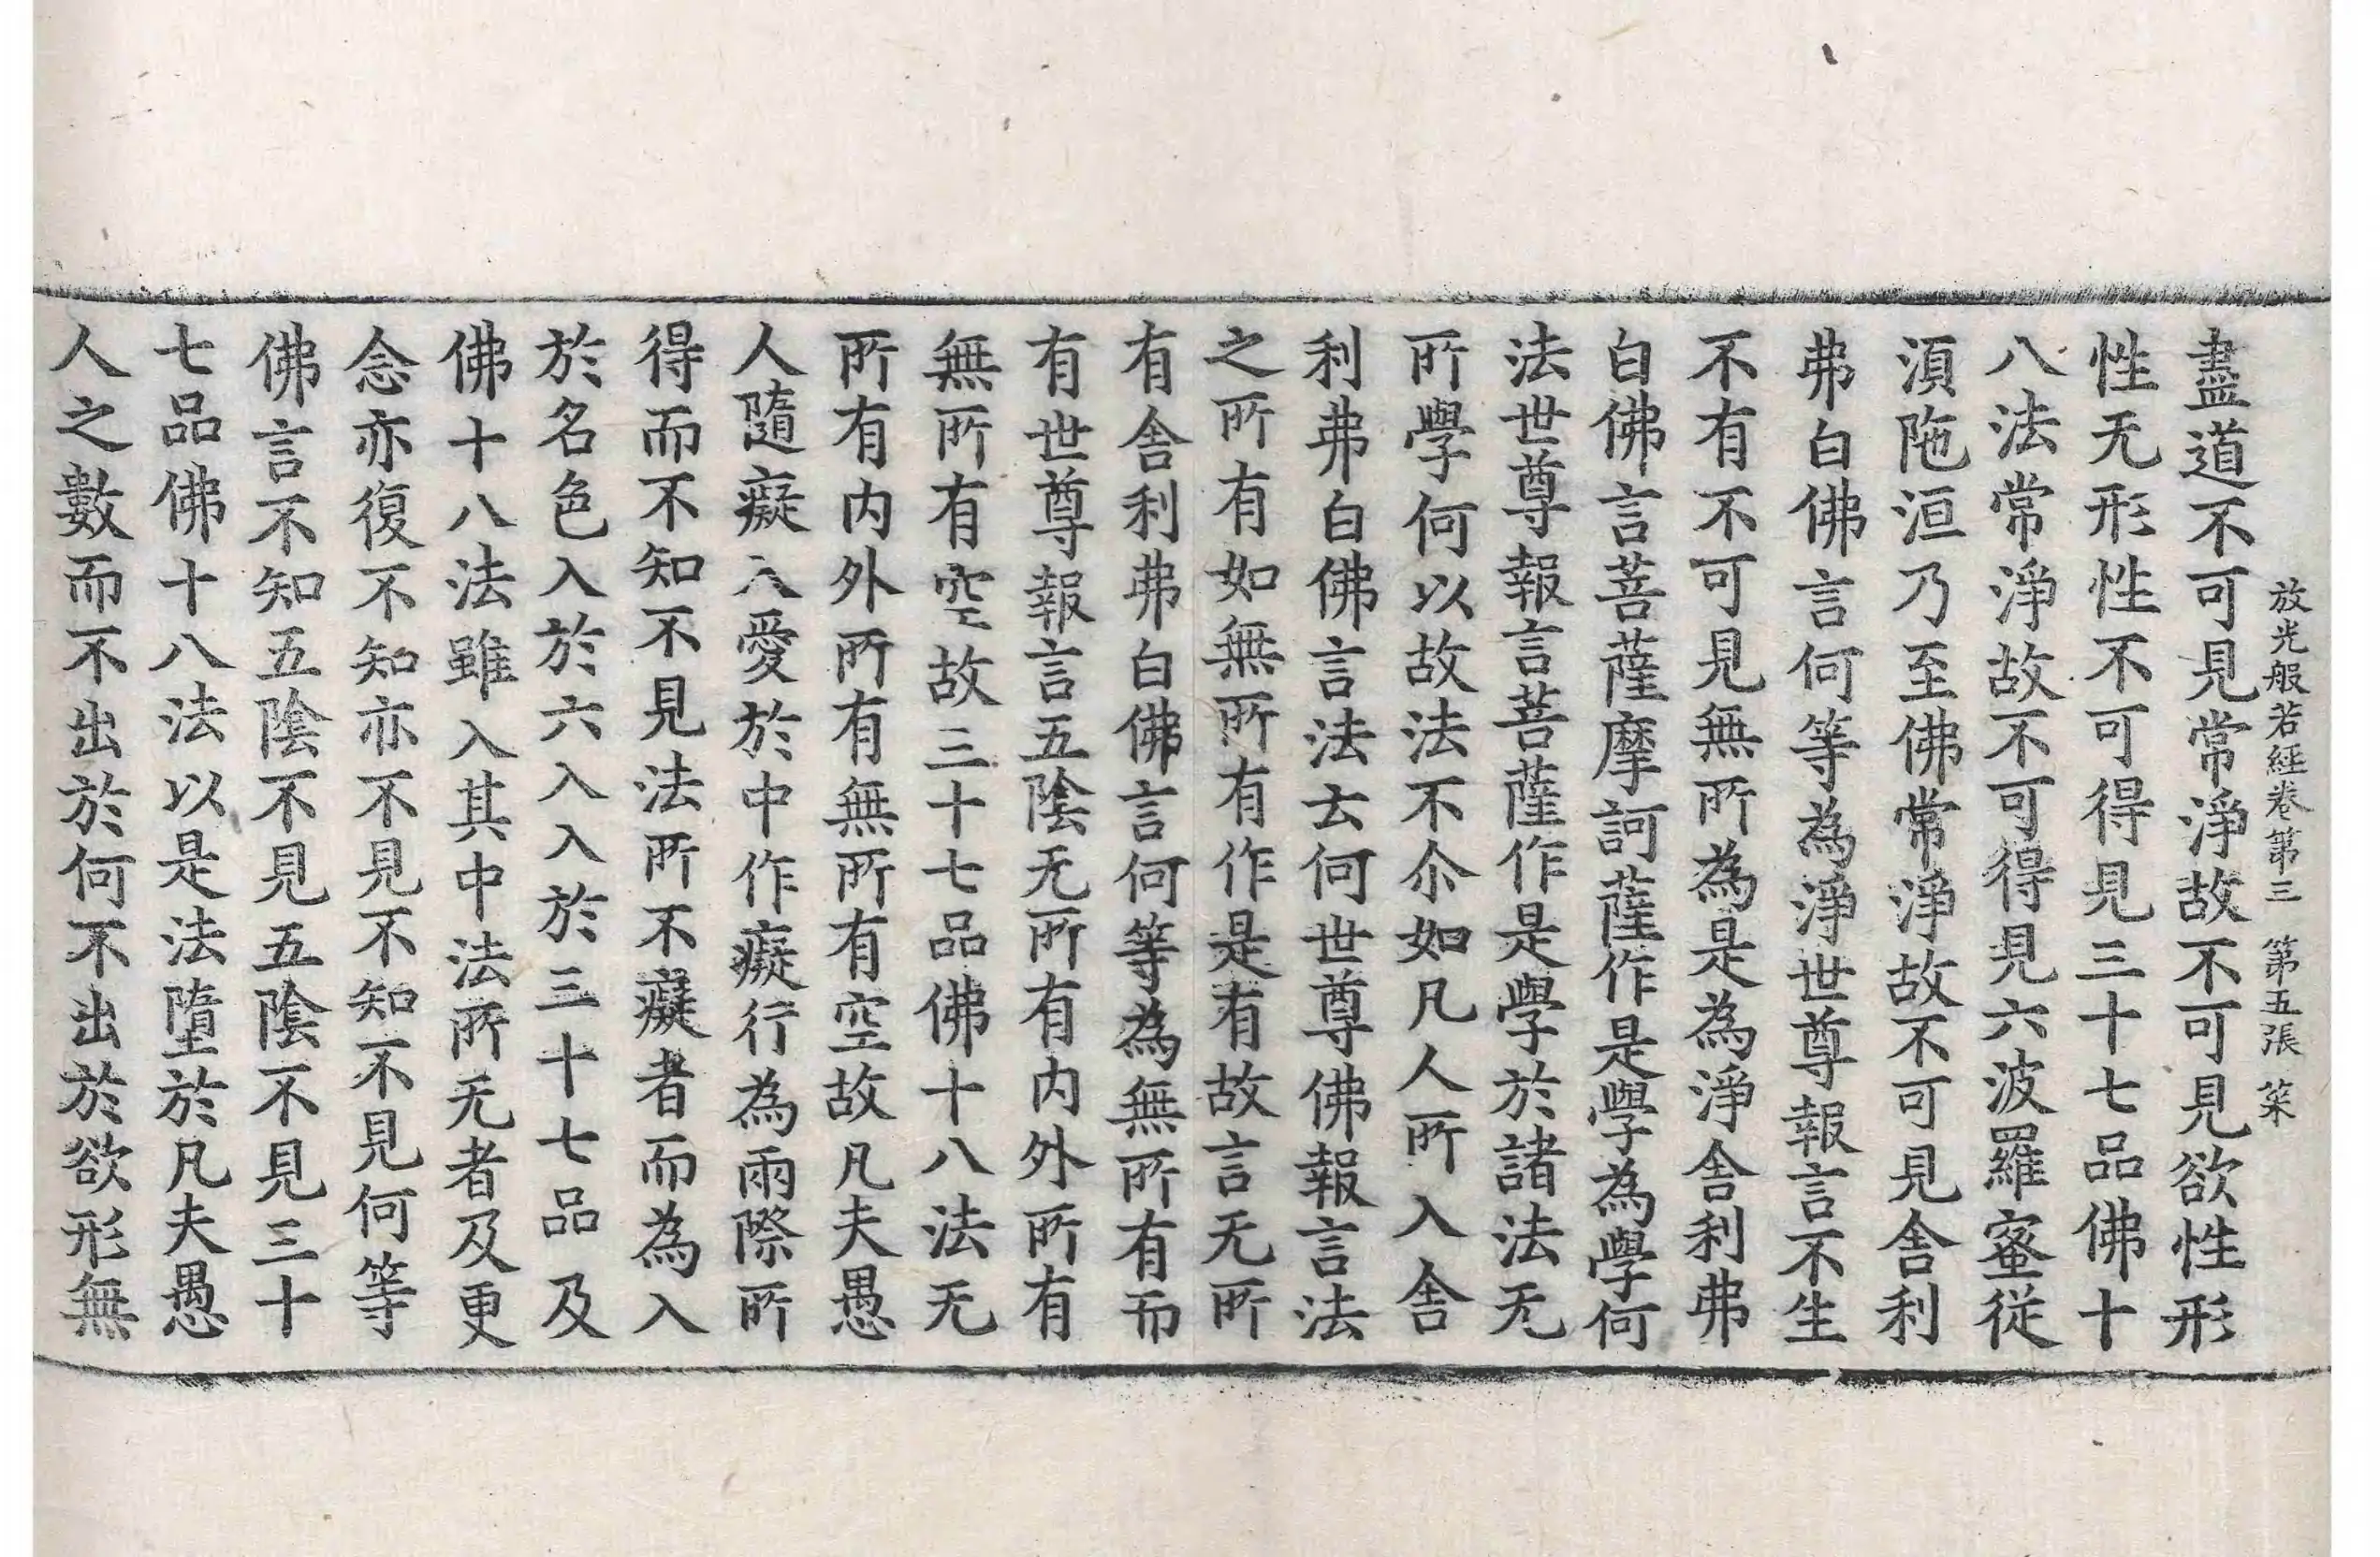 放光般若經卷第三 第五張 菜
盡道不可見常淨故不可見欲性形
性无形性不可得見三十七品佛十
八法常淨故不可得見六波羅蜜從
湏陁洹乃至佛常淨故不可見舍利
弗白佛言何等為淨世尊報言不生
不有不可見無所為是為淨舍利弗
白佛言菩薩摩訶薩作是學為學何
法世尊報言菩薩作是學於諸法无
所學何以故法不尒如凡人所入舍
利弗白佛言法云何世尊佛報言法
之所有如無所有作是有故言无所
有舍利弗白佛言何等為無所有而
有世尊報言五陰无所有内外所有
無所有空故三十七品佛十八法无
所有内外所有無所有空故凡夫愚
人隨癡入愛於中作癡行為兩際所
得而不知不見法所不癡者而為入
於名色入於六入入於三十七品及
佛十八法雖入其中法所无者及更
念亦復不知亦不見不知不見何等
佛言不知五陰不見五陰不見三十
七品佛十八法以是法墮於凡夫愚
人之數而不出於何不出於欲形無